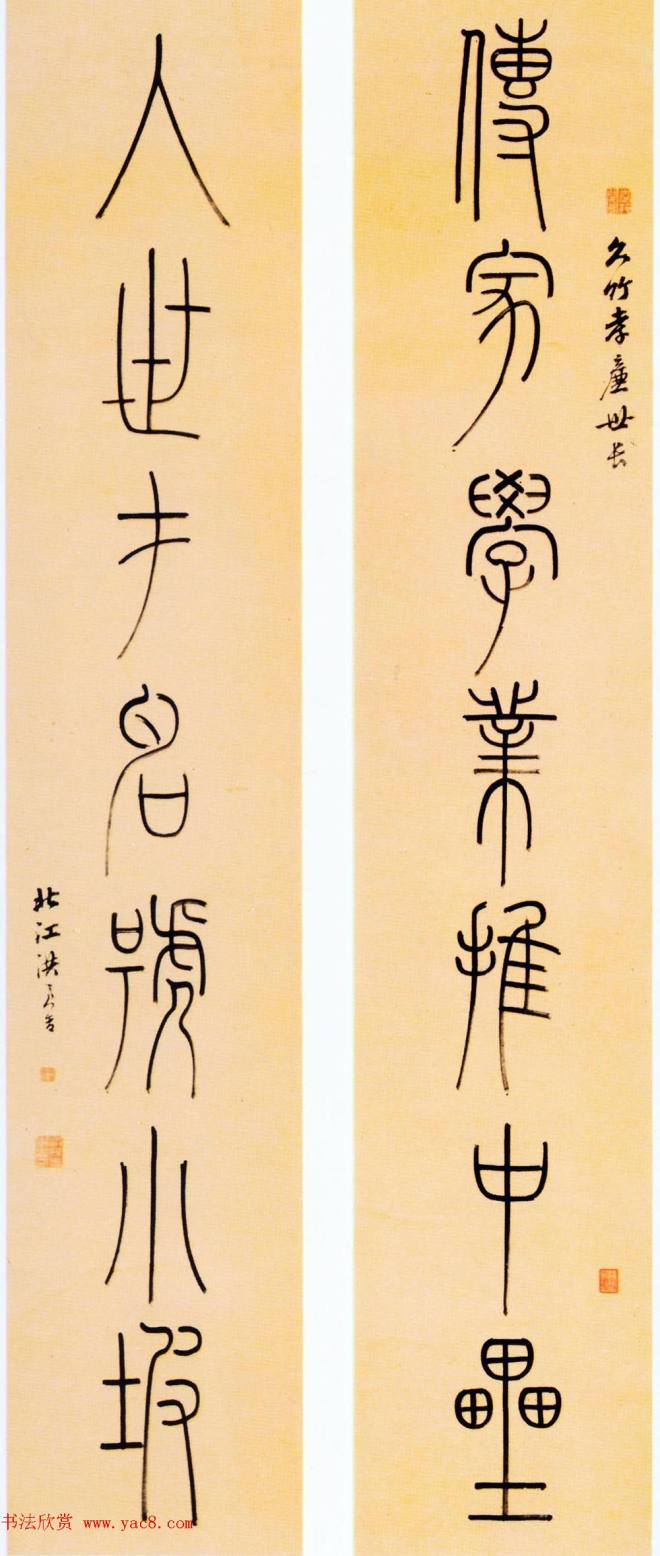 竹孝廉世長
傳家學業推中壘
入世才名號小坡
北江洪亮吉
书法欣赏 www.yac8.com